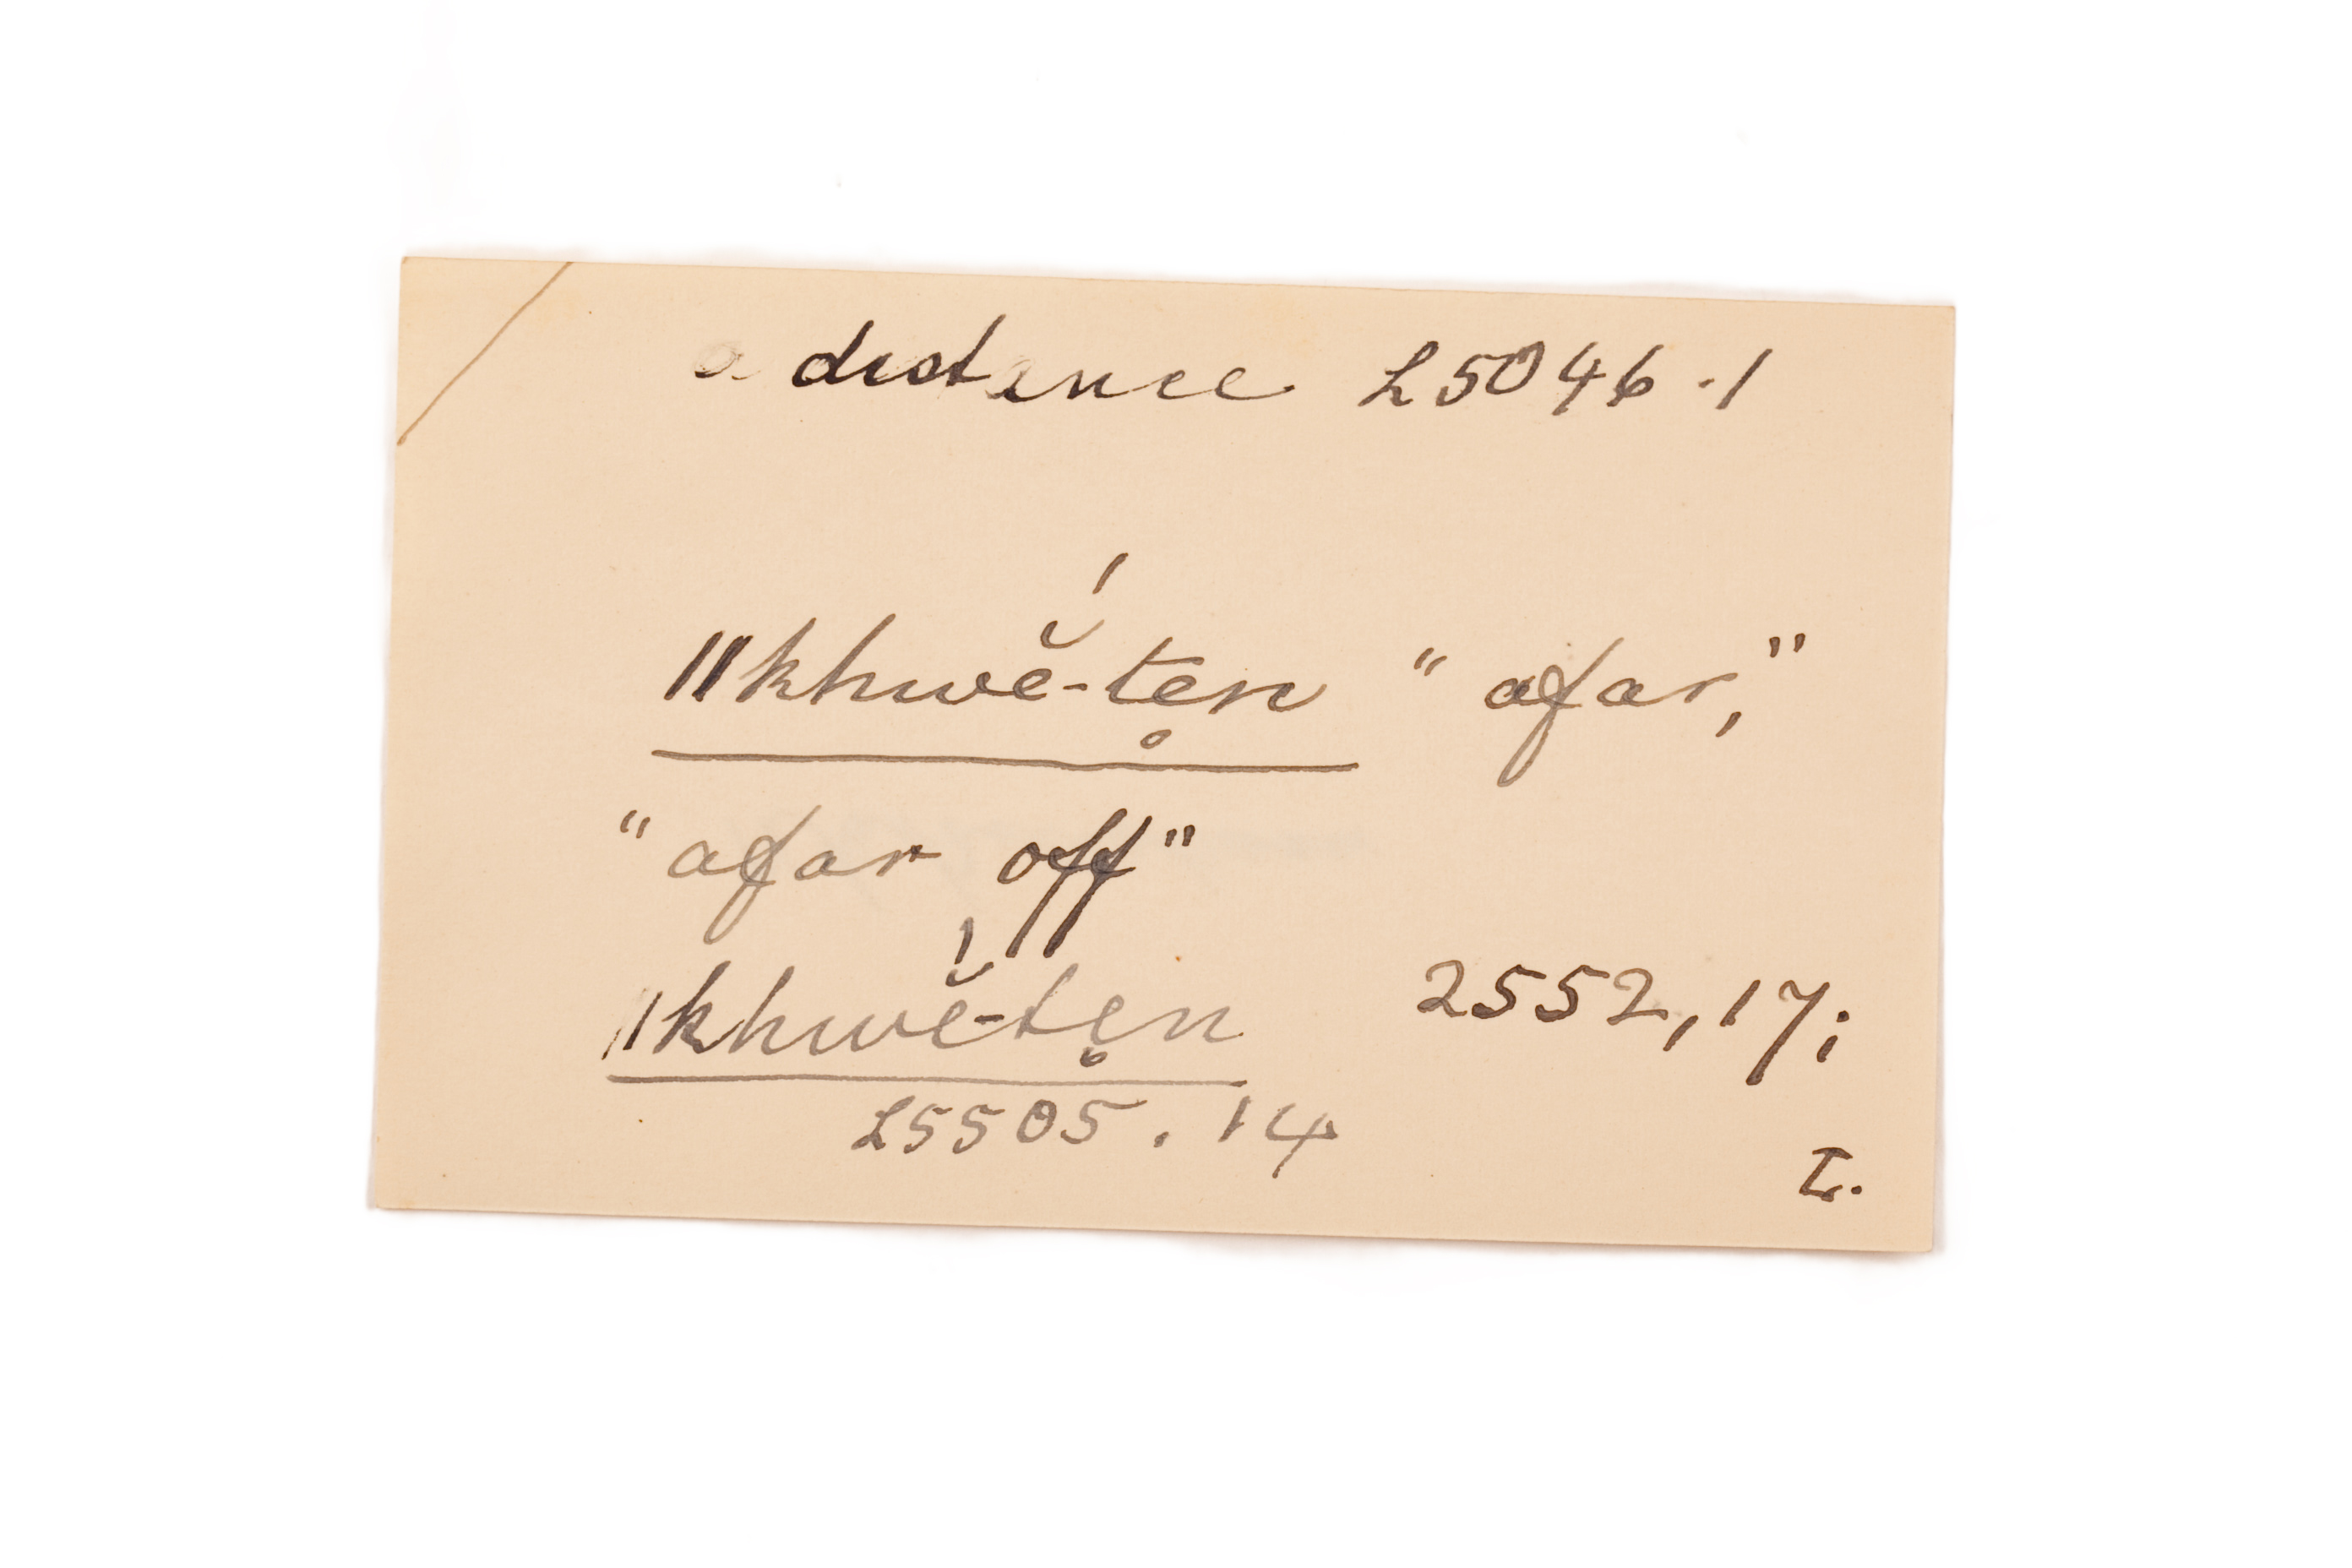 a distance L5046.1
ǁkhwĕ́-te̥n "afar,"
"afar off"
ǁkhwĕ́-te̥n 2552,17;
L5505.14
L.